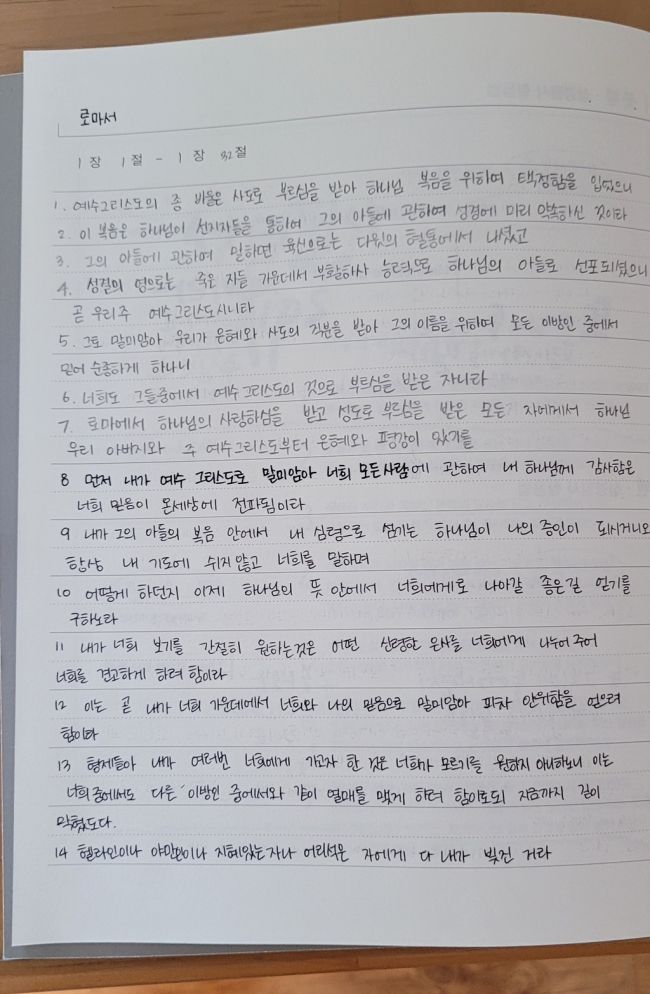 로마서
1 장 1 절 - 1 장 32 절
1. 예수그리스도의 종 바울은 사도로 부르심을 받아 하나님 복음을 위하여 택정함을 입었으니
2. 이 복음은 하나님이 선지자들을 통하여 그의 아들에 관하여 성경에 미리 약속하신 것이라
3. 그의 아들에 관하여 말하면 육신으로는 다윗의 혈통에서 나셨고
4. 성결의 영으로는 죽은 자들 가운데서 부활하사 능력으로 하나님의 아들로 선포되셨으니
곧 우리주 예수그리스도시니라
5. 그로 말미암아 우리가 은혜와 사도의 직분을 받아 그의 이름을 위하여 모든 이방인 중에서
믿어 순종하게 하나니
6. 너희도 그들중에서 예수그리스도의 것으로 부르심을 받은 자니라
7. 로마에서 하나님의 사랑하심을 받고 성도로 부르심을 받은 모든 자에게 하나님
우리 아버지와 주 예수그리스도부터 은혜와 평강이 있기를
8 먼저 내가 예수 그리스도로 말미암아 너희 모든사람에 관하여 내 하나님께 감사함은
너희 믿음이 온세상에 전파됨이라
9 내가 그의 아들의 복음 안에서 내 심령으로 섬기는 하나님이 나의 증인이 되시거니와
항상 내 기도에 쉬지않고 너희를 말하며
10 어떻게 하던지 이제 하나님의 뜻 안에서 너희에게로 나아갈 좋은길 얻기를
구하노라
11 내가 너희 보기를 간절히 원하는것은 어떤 신령한 은사를 너희에게 나누어 주어
너희를 견고하게 하려 함이라
12 이는 곧 내가 너희 가운데에서 너희와 나의 믿음으로 말미암아 피차 안위함을 얻으려
함이라
13 형제들아 내가 여러번 너희에게 가고자 한 것은 너희가 모르기를 원하지 아니하노니 이는
너희중에서도 다른 이방인 중에서와 같이 열매를 맺게 하려 함이로되 지금까지 길이
막혔도다.
14 헬라인이나 야만인이나 지혜있는자나 어리석은 자에게 다 내가 빚진 거라